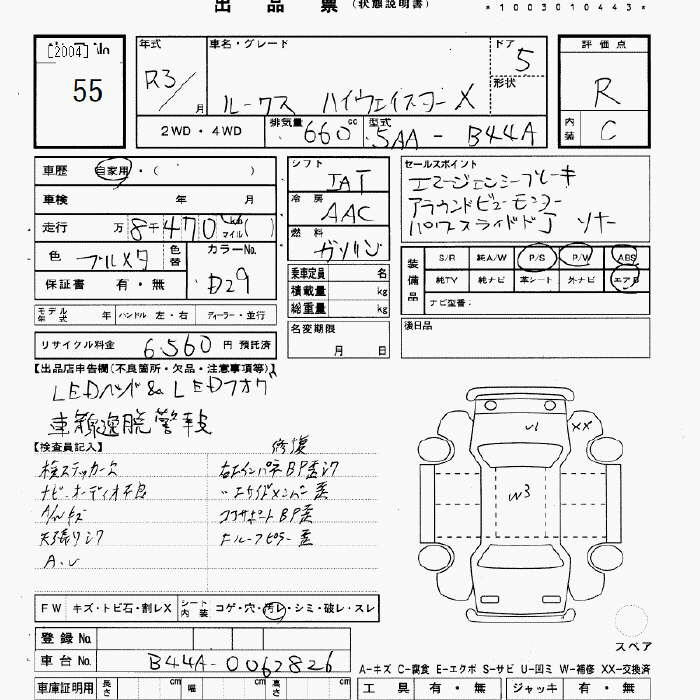 出 品 票 (状態説明書)
*1003010443*
[2004]
55
年式 R3/ 月
車名・グレード ルークス ハイウェイスター X
ドア 5
形状
評価点 R
内装 C
2WD・4WD
排気量 660 cc
型式 5AA - B44A
車歴 自家用・( )
車検 年 月
走行 万 8千470 km マイル( )
色 ブルメタ
色替
カラーNo. D29
保証書 有・無
シフト IAT
冷房 AAC
燃料 ガソリン
乗車定員 名
積載量 kg
総重量 kg
名変期限
月 日
セールスポイント
エマージェンシーブレーキ
アラウンドビューモニター
パワースライドドア ソナー
装備品
S/R 純A/W P/S P/W ABS
純TV 純ナビ 革シート 外ナビ エアB
ナビ型番:
後日品
モデル年式 年 ハンドル 左・右 ディーラー・並行
リサイクル料金 6,560 円 預託済
【出品店申告欄(不良箇所・欠品・注意事項等)】
LEDヘッド& LEDフォグ
車線逸脱警報
【検査員記入】
修復
検ステッカー欠
ナビ・オーディオ不良
A/Wキズ
天張りシワ
A.U
右インパネBP歪シワ
〃エサイドメンバー歪
コアサポートBP歪
F ルーフピラー歪
U1
XX
W3
FW キズ・トビ石・割レX
シート内装 コゲ・穴・汚レ・シミ・破レ・スレ
登録 No.
車台 No. B44A-0062826
スペア
A-キズ C-腐食 E-エクボ S-サビ U-凹ミ W-補修 XX-交換済
車庫証明用 長さ cm 幅 cm 高さ cm
工具 有・無 ジャッキ 有・無